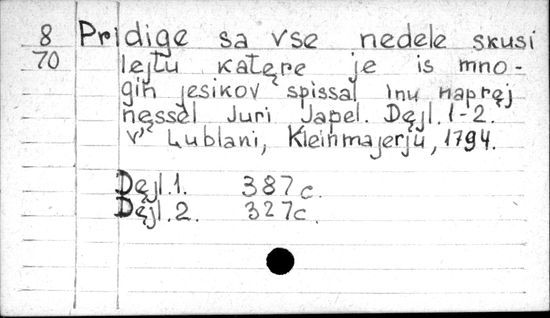 8 Pridige sa vse nedele skusi
70 lejtu katęre je is mno-
gih jesikov spissal inu napręj
nessel Juri Japel. Dęjl. 1-2.
V' Lublani, Kleinmajerju, 1794.
Dęjl. 1. 387 c.
Dęjl. 2. 327 c.